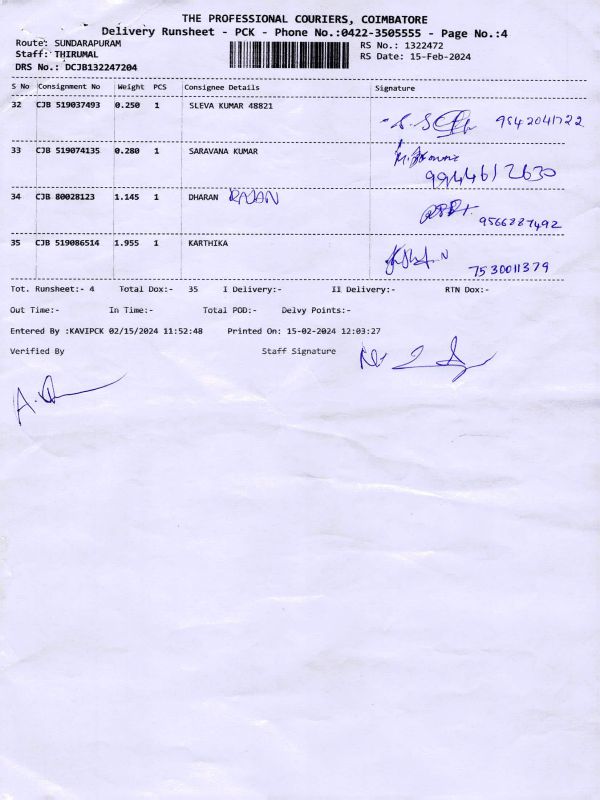 THE PROFESSIONAL COURIERS, COIMBATORE
Delivery Runsheet - PCK - Phone No.:0422-3505555 - Page No.:4
Route: SUNDARAPURAM RS No.: 1322472
Staff: THIRUMAL RS Date: 15-Feb-2024
DRS No.: DCJB132247204
S No Consignment No Weight PCS Consignee Details Signature
32 CJB 519037493 0.250 1 SLEVA KUMAR 48821
9542041722
33 CJB 519074135 0.280 1 SARAVANA KUMAR
9944612630
34 CJB 80028123 1.145 1 DHARAN RAJAN
9566287492
35 CJB 519086514 1.955 1 KARTHIKA
7530011379
Tot. Runsheet:- 4 Total Dox:- 35 I Delivery:- II Delivery:- RTN Dox:-
Out Time:- In Time:- Total POD:- Delvy Points:-
Entered By :KAVIPCK 02/15/2024 11:52:48 Printed On: 15-02-2024 12:03:27
Verified By Staff Signature